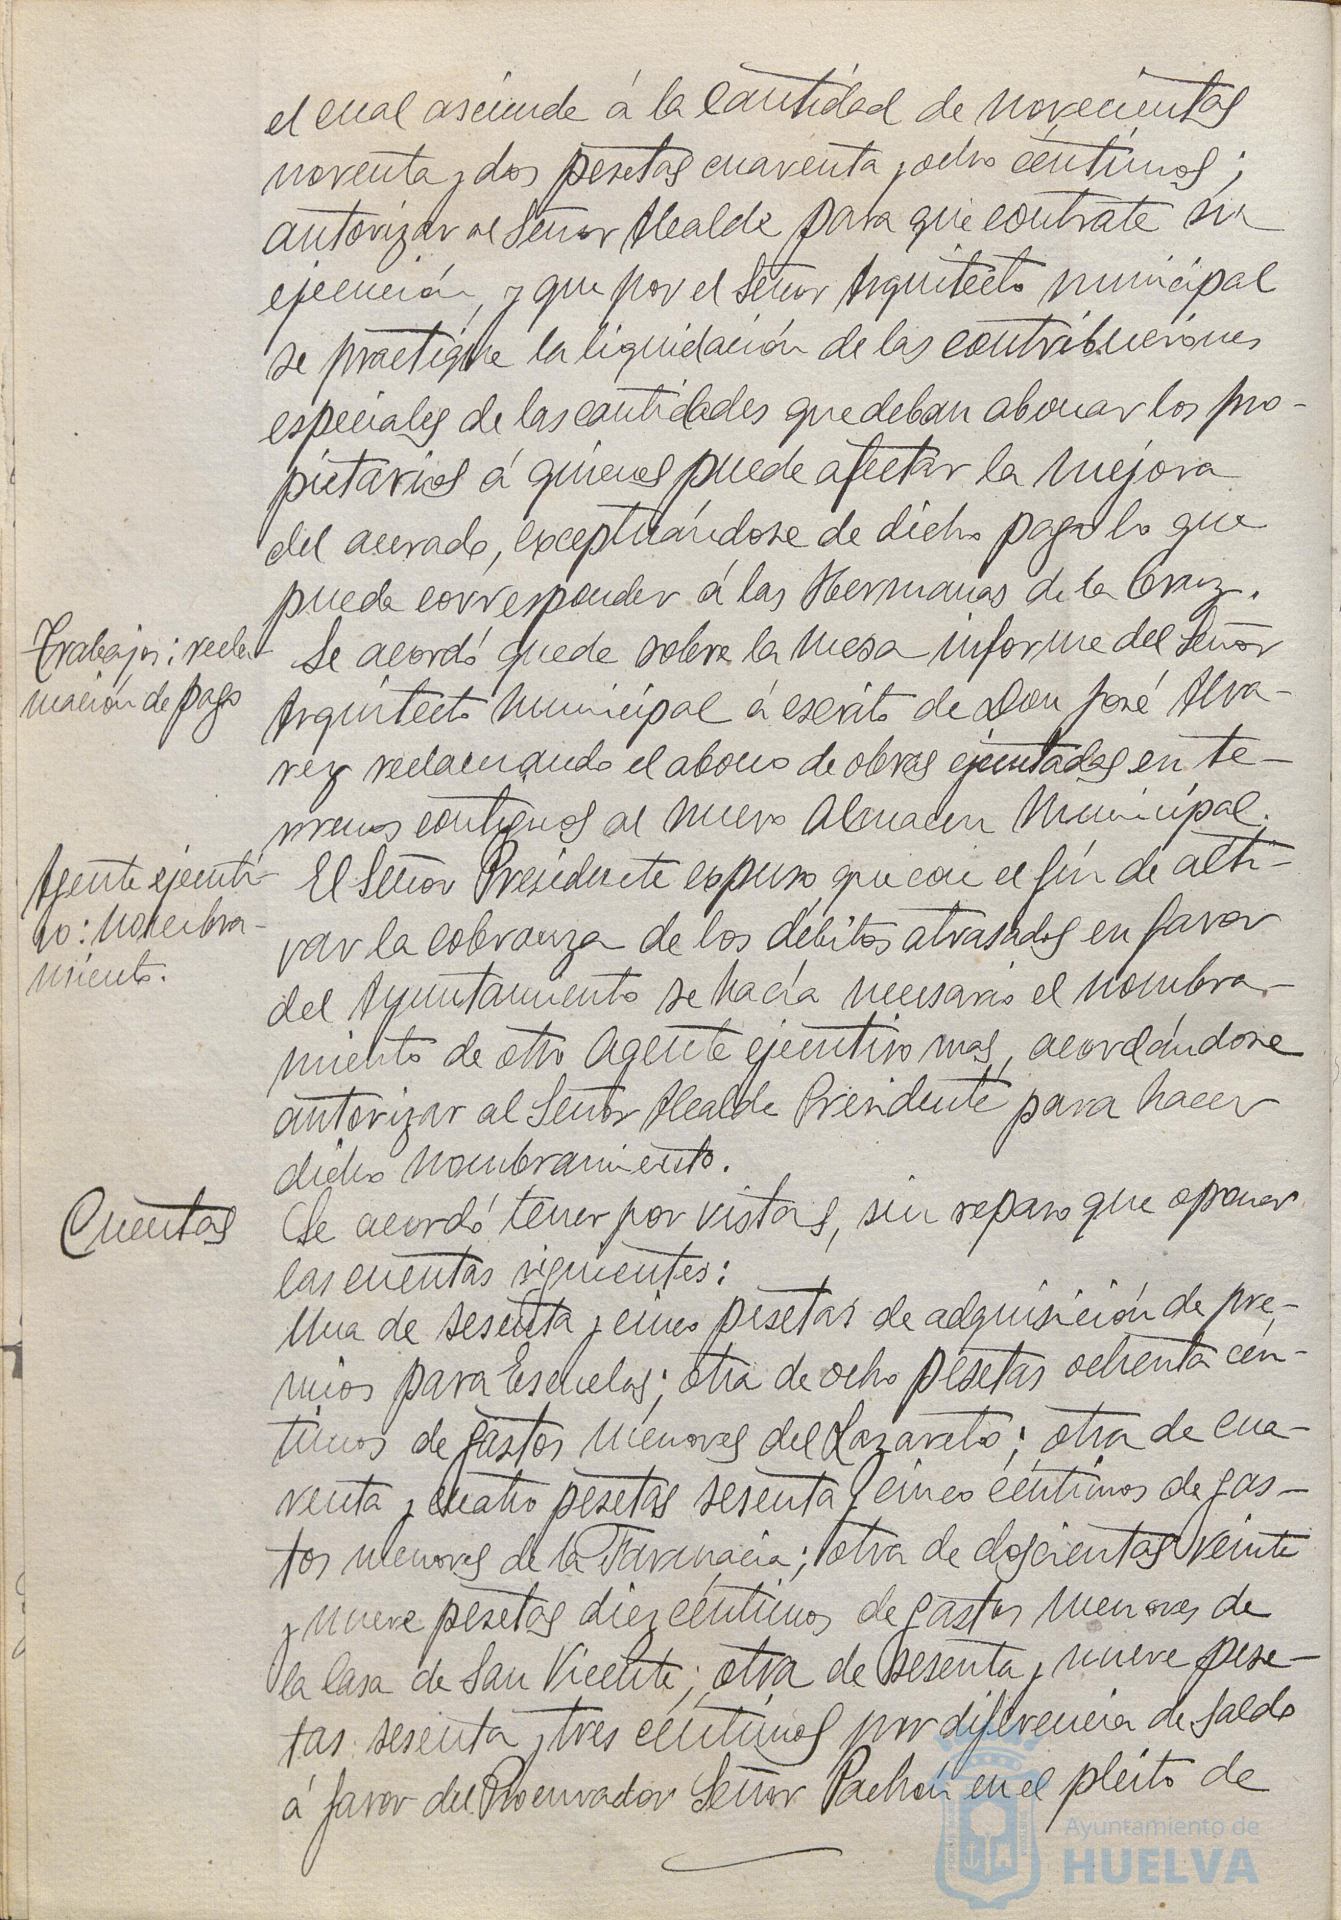 el cual asciende á la cantidad de novecientas
noventa y dos pesetas cuarenta y ocho céntimos;
autorizar al Señor Alcalde para que contrate su
ejecución, y que por el Señor Arquitecto municipal
se practique la liquidación de las contribuciones
especiales de las cantidades que deban abonar los pro-
pietarios á quienes puede afectar la mejora
del acerado, exceptuándose de dicho pago lo que
pueda corresponder á las Hermanas de la Cruz.
Trabajos: recla-
mación de pago
Se acordó quede sobre la mesa informe del Señor
Arquitecto Municipal á escrito de Don José Alva-
rez reclamando el abono de obras ejecutadas en te-
rrenos contiguos al nuevo Almacen Municipal.
Agente ejecuti-
vo: nombra-
miento.
El Señor Presidente expuso que con el fin de acti-
var la cobranza de los débitos atrasados en favor
del Ayuntamiento se hacía necesario el nombra-
miento de otro Agente ejecutivo mas, acordándose
autorizar al Señor Alcalde Presidente para hacer
dicho nombramiento.
Cuentas
Se acordó tener por vistas, sin reparo que oponer
las cuentas siguientes:
Una de sesenta y cinco pesetas de adquisición de pre-
mios para Escuelas; otra de ocho pesetas ochenta cén-
timos de gastos menores del Lazareto; otra de cua-
renta y cuatro pesetas sesenta y cinco céntimos de gas-
tos menores de la Farmacia; otra de doscientas veinte
y nueve pesetas diez céntimos de gastos menores de
la Casa de San Vicente; otra de sesenta y nueve pese-
tas sesenta y tres céntimos por diferencia de saldo
á favor del Procurador Señor Pachón en el pleito de
Ayuntamiento de
HUELVA